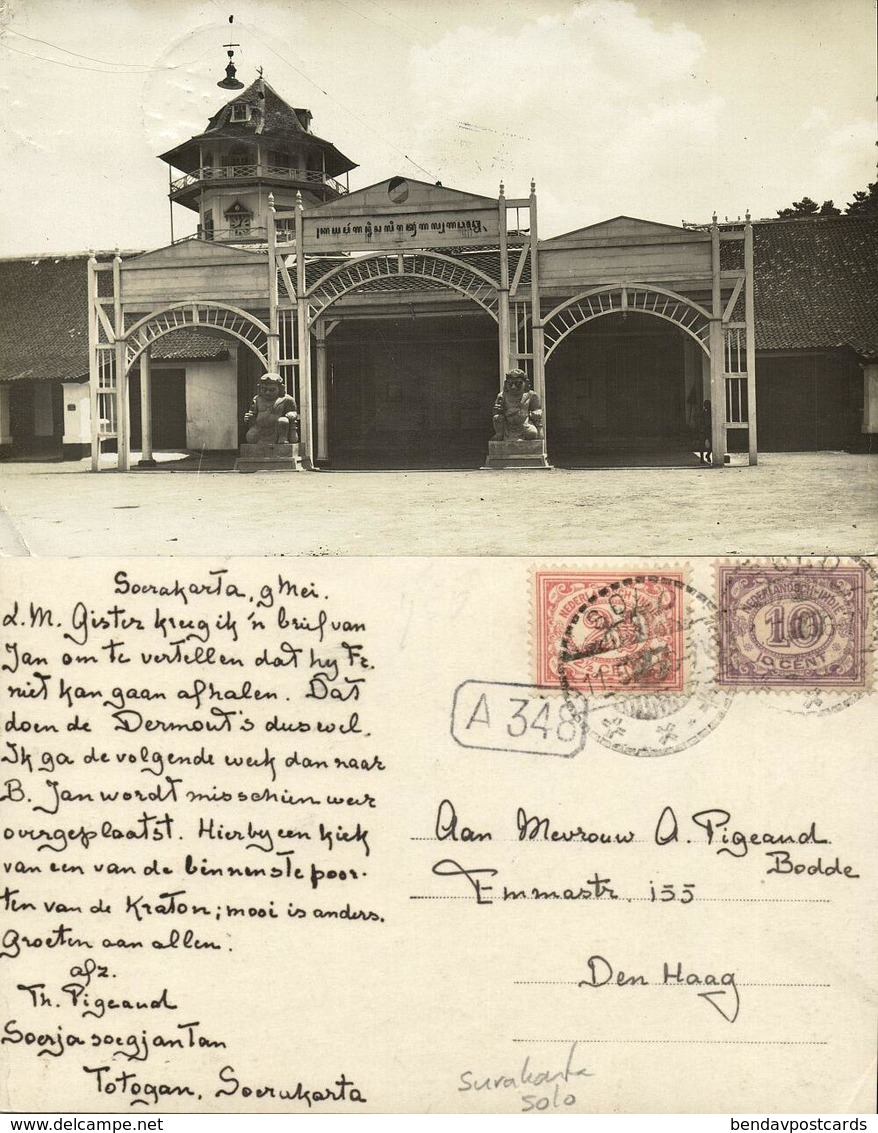 Soerakarta, 9 Mei.
L.M. Gister kreeg ik 'n brief van
Jan om te vertellen dat hy Fr.
niet kan gaan afhalen. Dat
doen de Dermout's dus wel.
Ik ga de volgende week dan naar
B. Jan wordt misschien weer
overgeplaatst. Hierby een kiek
van een van de binnenste poor-
ten van de Kraton; mooi is anders.
Groeten aan allen.
afz.
Th. Pigeaud
Soerja soegjantan
Totogan, Soerakarta
SOLO
NEDERLANDSCH-INDIE
2½
CENT
SOLO
NEDERLANDSCH-INDIE
10
10 CENT
A 348
Aan Mevrouw A. Pigeaud
Bodde
Emmastr. 155
Den Haag
Surakarta
Solo
bendavpostcards
bendavpostcards.com